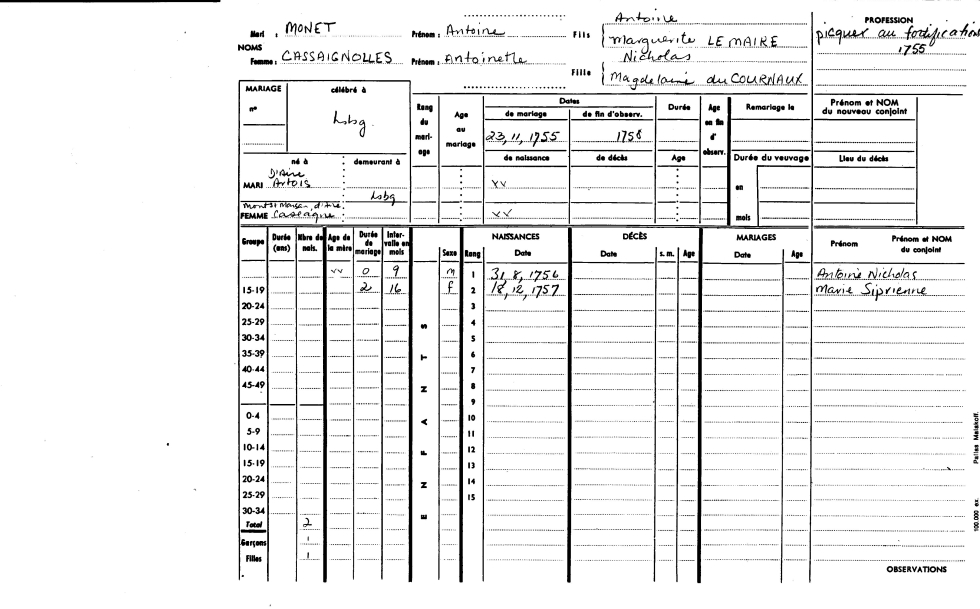 Antoine
PROFESSION
Mari : MONET Prénom : Antoine Fils Marguerite LE MAIRE picquer au fortifications
NOMS 1755
Femme : CASSAIGNOLLES Prénom : Antoinette Nicholas
Fille Magdelaine du COURNAUX
MARIAGE célébré à Rang du mariage Age au mariage Dates Durée Age en fin d' observ. Remariage le Prénom et NOM du nouveau conjoint
nº de mariage de fin d'observ.
Lsbg 23, 11, 1755 1758
de naissance de décès Age Durée du veuvage Lieu du décès
né à demeurant à
D'Aire
MARI Artois vv en
Lsbg
FEMME vv mois
Groupe Durée (ans) Nbre de nais. Age de la mère Durée de mariage Intervalle en mois Sexe Rang NAISSANCES DÉCÈS MARIAGES Prénom Prénom et NOM du conjoint
Date Date s. m. Age Date Age
vv 0 9 m 1 31, 8, 1756 Antoine Nicholas
15-19 2 16 f 2 18, 12, 1757 Marie Siprienne
20-24 3
25-29 4
30-34 5
35-39 6
40-44 7
45-49 8
9
0-4 10
5-9 11
10-14 12
15-19 13
20-24 14
25-29 15
30-34
ENFANTS
Total 2
Garçons 1
Filles 1
OBSERVATIONS
100.000 ex. Pallas Malakoff.